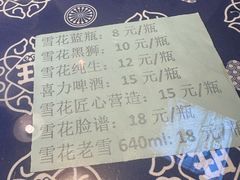 雪花蓝瓶：8 元/瓶
雪花黑狮：10 元/瓶
雪花纯生：12 元/瓶
喜力啤酒：15 元/瓶
雪花匠心营造：15 元/瓶
雪花脸谱：18 元/瓶
雪花老雪 640ml：18